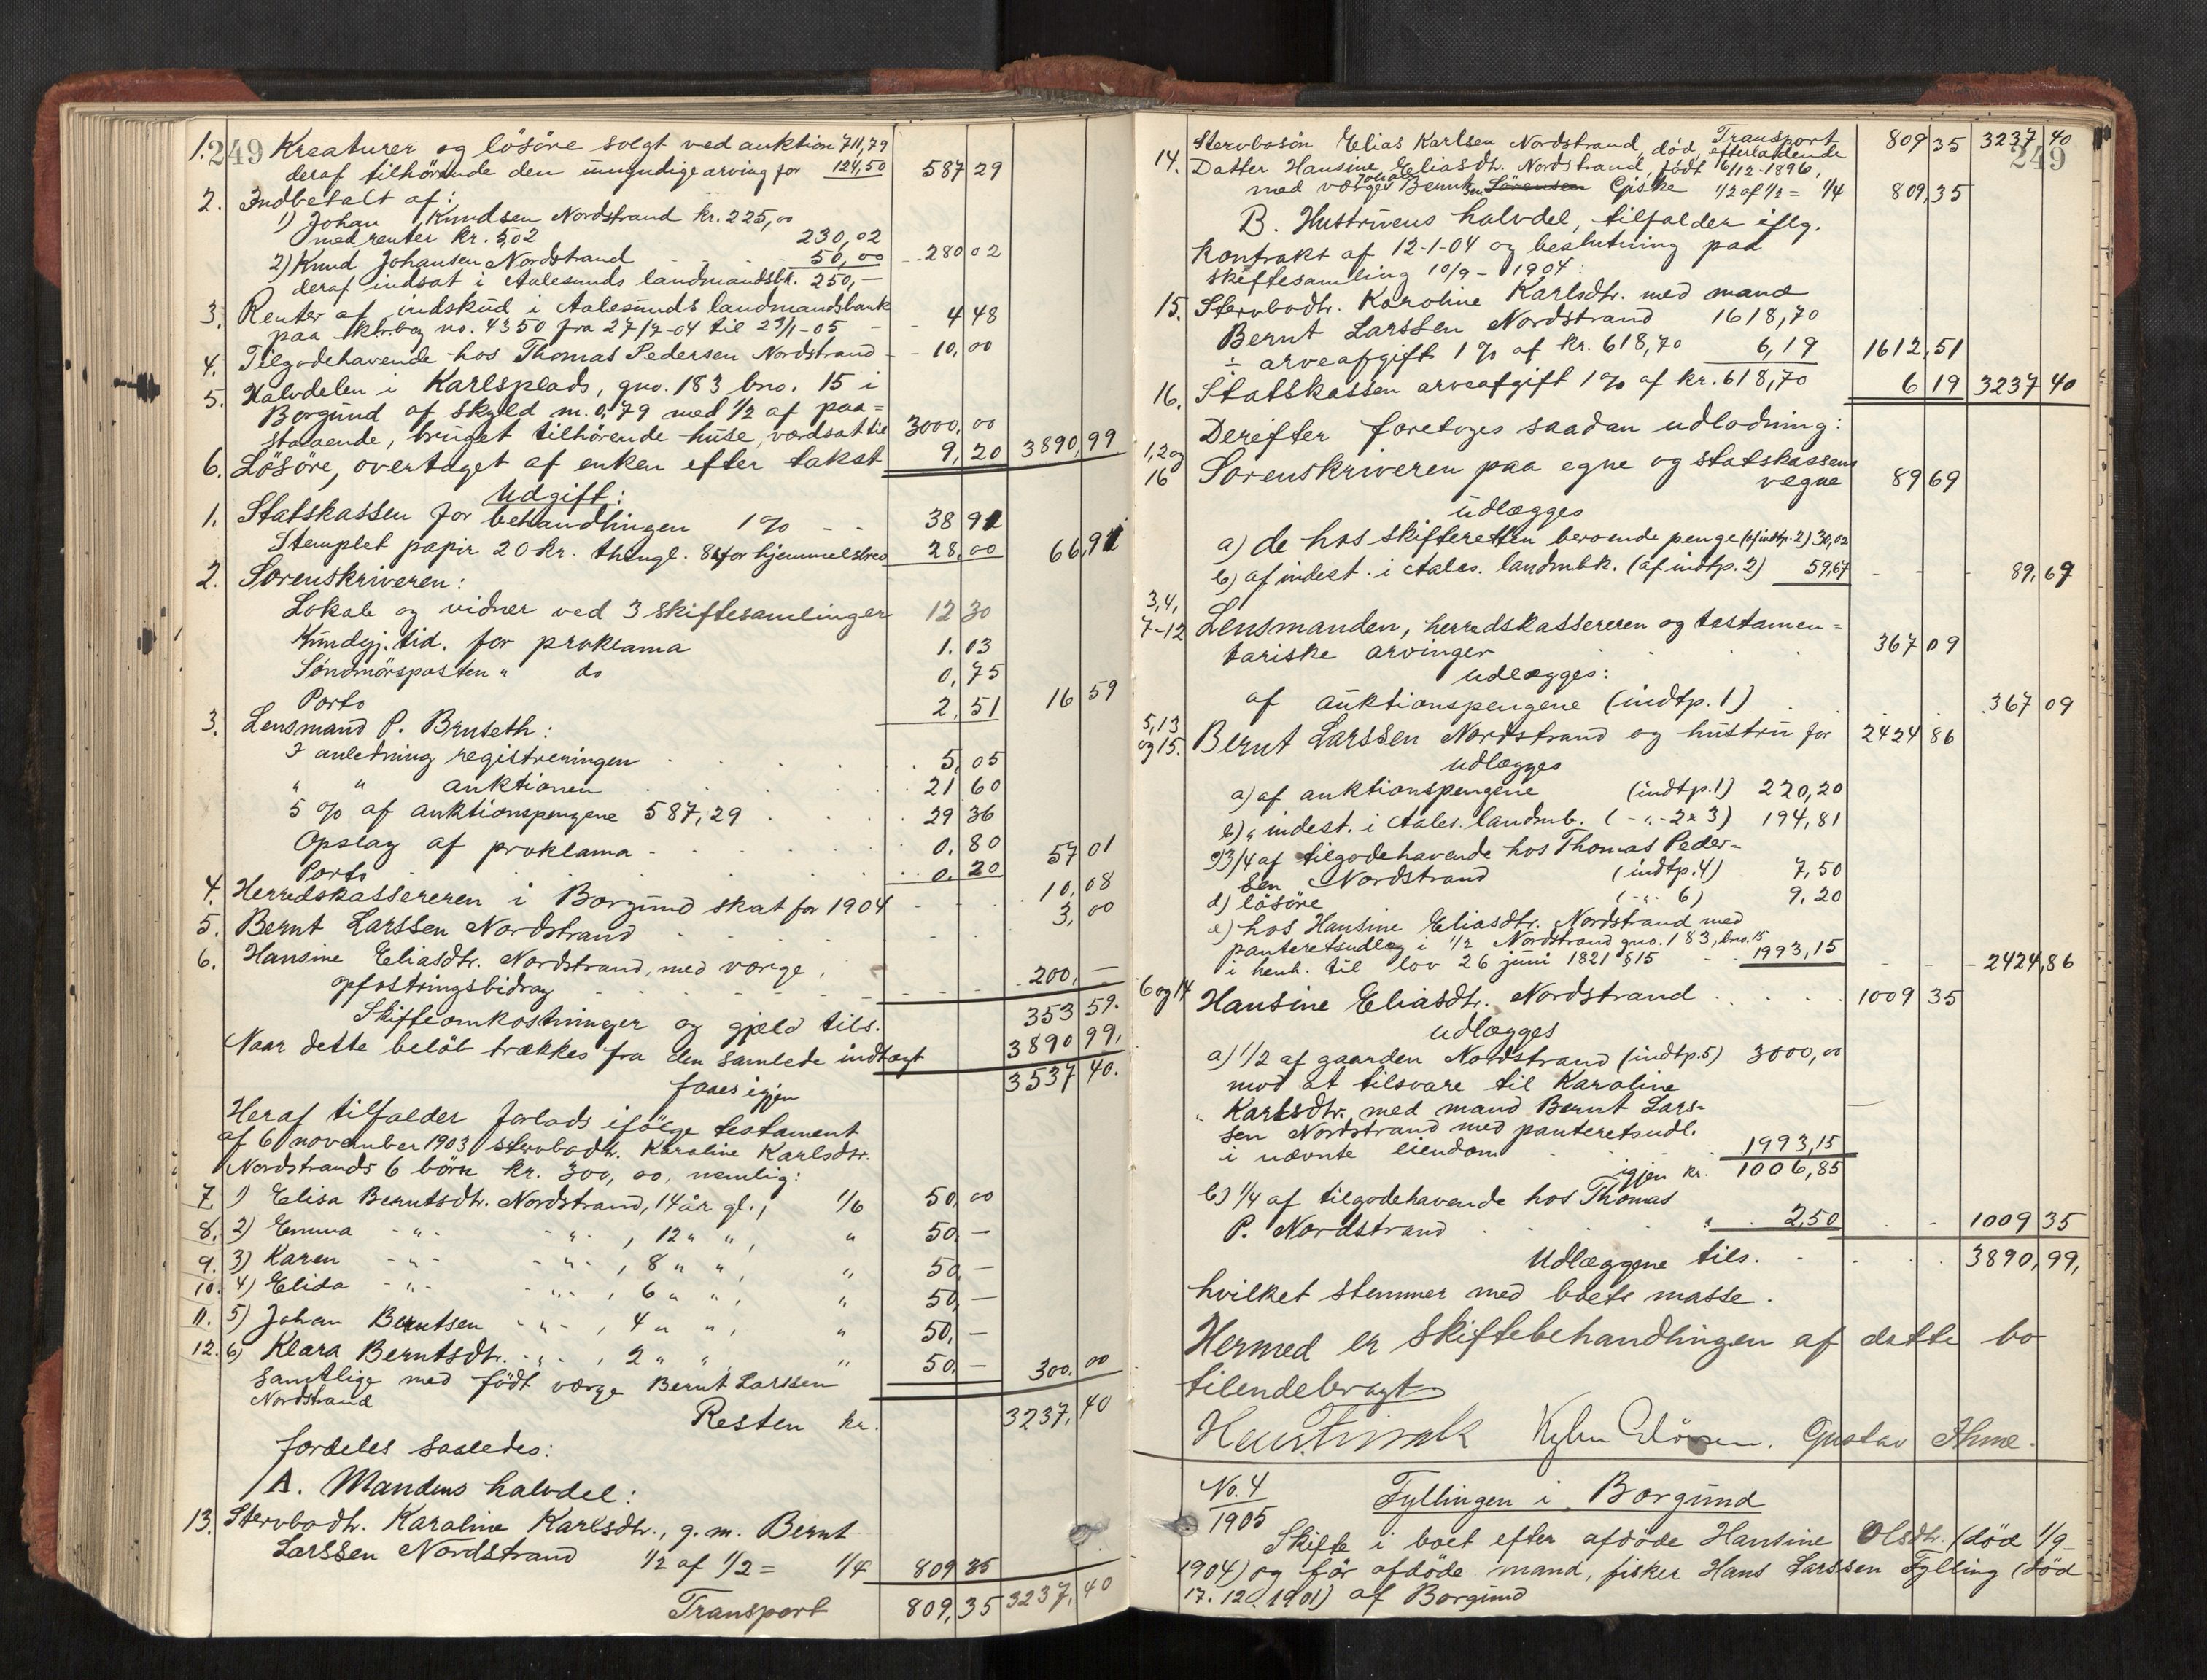 249
1. Kreaturer og lösöre solgt ved auktion 711,79
deraf tilhörende den umyndige arving for 124,50 587 29
2. Indbetalt af:
1) Johan Knudsen Nordstrand kr. 225,00
med renter kr. 5,02 230,02
2) Knud Johansen Nordstrand 50,00 280 02
deraf indsat i Aalesunds landmandsbk. 250,—
3. Renter af indskud i Aalesunds landmandsbank
paa ktrbog no. 4350 fra 27/7-04 til 23/1-05 4 48
4. Tilgodehavende hos Thomas Pedersen Nordstrand 10,00
5. Halvdelen i Karlsplads, gno. 183 bno. 15 i
Borgund af skyld m. 0,79 med 1/2 af paa=
staaende, bruget tilhörende huse, værdsat til 3000,00
6. Lösöre, overtaget af enken efter takst 9,20 3890,99
Udgift:
1. Statskassen for behandlingen 1 % 38 91
Stemplet papir 20 kr. thingl. 8 kr for hjemmelsbrev 28,00 66,91
2. Sorenskriveren:
Lokale og vidner ved 3 skiftesamlinger 12 30
Kundgj. tid. for proklama 1.03
Söndmörsposten " do 0,75
Porto 2,51 16 59
3. Lensmand P. Bruseth:
I anledning registreringen 5,05
" " auktionen 21 60
5 % af auktionspengene 587,29 29 36
Opslag af proklama 0,80
Porto 0.20 57 01
4. Herredskassereren i Borgund skat for 1904 10,08
5. Bernt Larssen Nordstrand 3,00
6. Hansine Eliasdtr. Nordstrand, med værge,
opfostringsbidrag 200,—
Skifteomkostninger og gjæld tils. 353 59.
Naar dette belöb trækkes fra den samlede indtægt 3890 99,
faaes igjen 3537 40.
Heraf tilfalder forlods ifölge testament
af 6 november 1903 stervbodtr. Karoline Karlsdtr.
Nordstrands 6 börn kr. 300,00, nemlig:
7. 1) Elisa Berntsdtr. Nordstrand, 14 år gl., 1/6 50,00
8. 2) Emma -"- -"- , 12 " ", " 50,—
9. 3) Karen -"- -"- , 8 " ", " 50,—
10. 4) Elida -"- -"- , 6 " ", " 50,—
11. 5) Johan Berntsen -"- , 4 " ", " 50,—
12. 6) Klara Berntsdtr. -"- , 2 " " " 50,— 300,00
samtlige med födt værge Bernt Larssen
Nordstrand
Resten kr. 3237,40
fordeles saaledes:
A. Mandens halvdel:
13. Stervbodtr. Karoline Karlsdtr., g. m. Bernt
Larssen Nordstrand 1/2 af 1/2 = 1/4 809 35
Transport 809,35 3237,40
249
Transport 809 35 3237 40
14. Stervbosön Elias Karlsen Nordstrand, död, efterladende
Datter Hansine Eliasdtr. Nordstrand, födt 16/12-1896,
med værge Bernt Sörensen Giske 1/2 af 1/2 = 1/4 809,35
B. Hustruens halvdel, tilfalder iflg.
kontrakt af 12-1-04 og beslutning paa
skiftesamling 10/9 - 1904:
15. Stervbodtr. Karoline Karlsdtr. med mand
Bernt Larssen Nordstrand 1618,70
÷ arveafgift 1 % af kr. 618,70 6,19 1612,51
16. Statskassen arveafgift 1 % af kr. 618,70 6 19 3237 40
Derefter foretoges saadan udlodning:
1,2 og
16 Sorenskriveren paa egne og statskassens
vegne 89 69
udlægges
a) de hos skifteretten beroende penge (af indtp. 2) 30,02
b) af indest. i Aales. landmbk. (af indtp. 2) 59,67 89,69
3,4,
7-12 Lensmanden, herredskassereren og testamen=
tariske arvinger 367 09
udlægges:
af auktionspengene (indtp. 1) 367 09
5,13
og 15. Bernt Larssen Nordstrand og hustru for 2424 86
udlægges
a) af auktionspengene (indtp. 1) 220,20
b) " indest. i Aales. landmb. (-"- 2 & 3) 194,81
c) 3/4 af tilgodehavende hos Thomas Peder-
sen Nordstrand (indtp. 4) 7,50
d) lösöre (-"- 6) 9,20
e) hos Hansine Eliasdtr. Nordstrand med
panteretsudlæg i 1/2 Nordstrand gno. 183, bno. 15
i henh. til lov 26 juni 1821 § 15 1993,15 2424,86
6 og 14 Hansine Eliasdtr. Nordstrand 1009 35
udlægges
a) 1/2 af gaarden Nordstrand (indtp. 5) 3000,00
mod at tilsvare til Karoline
Karlsdtr. med mand Bernt Lars-
sen Nordstrand med panteretsudl.
i nævnte eiendom 1993,15
igjen kr. 1006,85
b) 1/4 af tilgodehavende hos Thomas
P. Nordstrand 2,50 1009 35
Udlæggene tils. 3890,99,
hvilket stemmer med boets masse.
Hermed er skiftebehandlingen af dette bo
tilendebragt
Gustav
No. 4
1905
Fyllingen i Borgund
Skifte i boet efter afdöde Hansine Olsdtr. (död 1/9
1904) og för afdöde mand, fisker Hans Larssen Fylling (död
17.12.1901) af Borgund